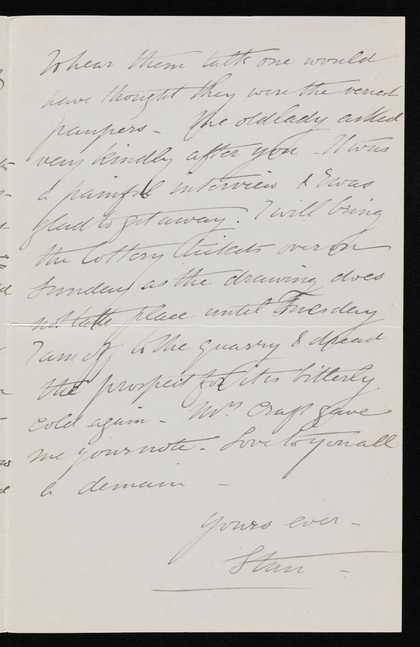 To hear them talk one would
have thought they were the veriest
paupers - The old lady asked
very kindly after you - It was
a painful interview & I was
glad to get away. I will bring
the lottery tickets over on
Sunday as the drawing does
not take place until Tuesday
I am off to the quarry & dread
the prospect for it is bitterly
cold again - Mrs Craft gave
me your note - Love to you all
a demain -
Yours ever -
Stan -